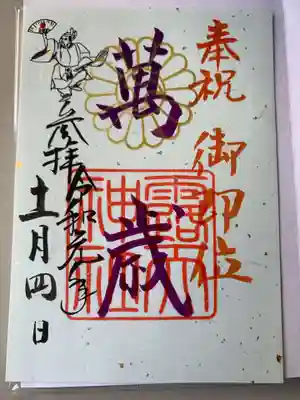 奉祝 御即位
萬歳
露天神社
参拝 令和元年
十一月四日